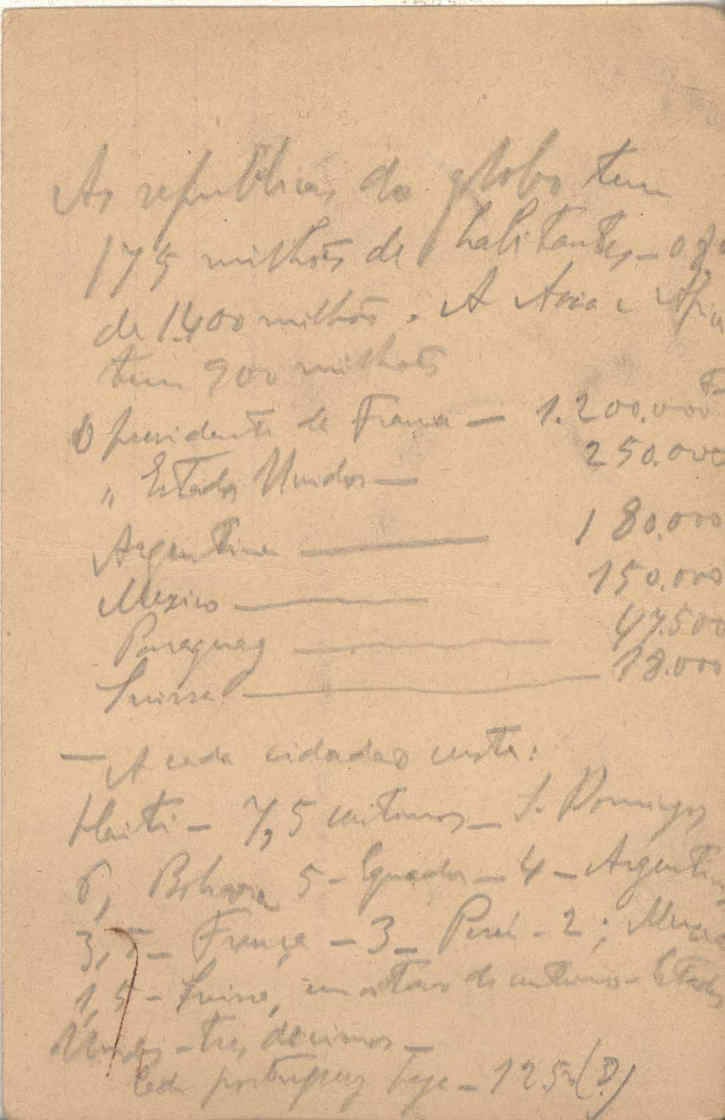 As republicas do globo tem
175 milhões de habitantes – o gl
de 1.400 milhões. A Asia e Afri
tem 900 milhões
O presidente de França — 1.200.000
" Estados Unidos — 250.000
Argentina — 180.000
Mexico — 150.000
Paraguay — 47.500
Suissa — 18.000
— A cada cidadão custa:
Haiti – 7,5 centimos – S. Domingos
6, Bolivia 5 – Equador – 4 – Argentin
3,5 – França – 3 – Perú – 2; Mexico
1,5 – Suissa, um oitavo de centimo – Estados
Unidos – tres decimos –
Cada portuguez paga – 125